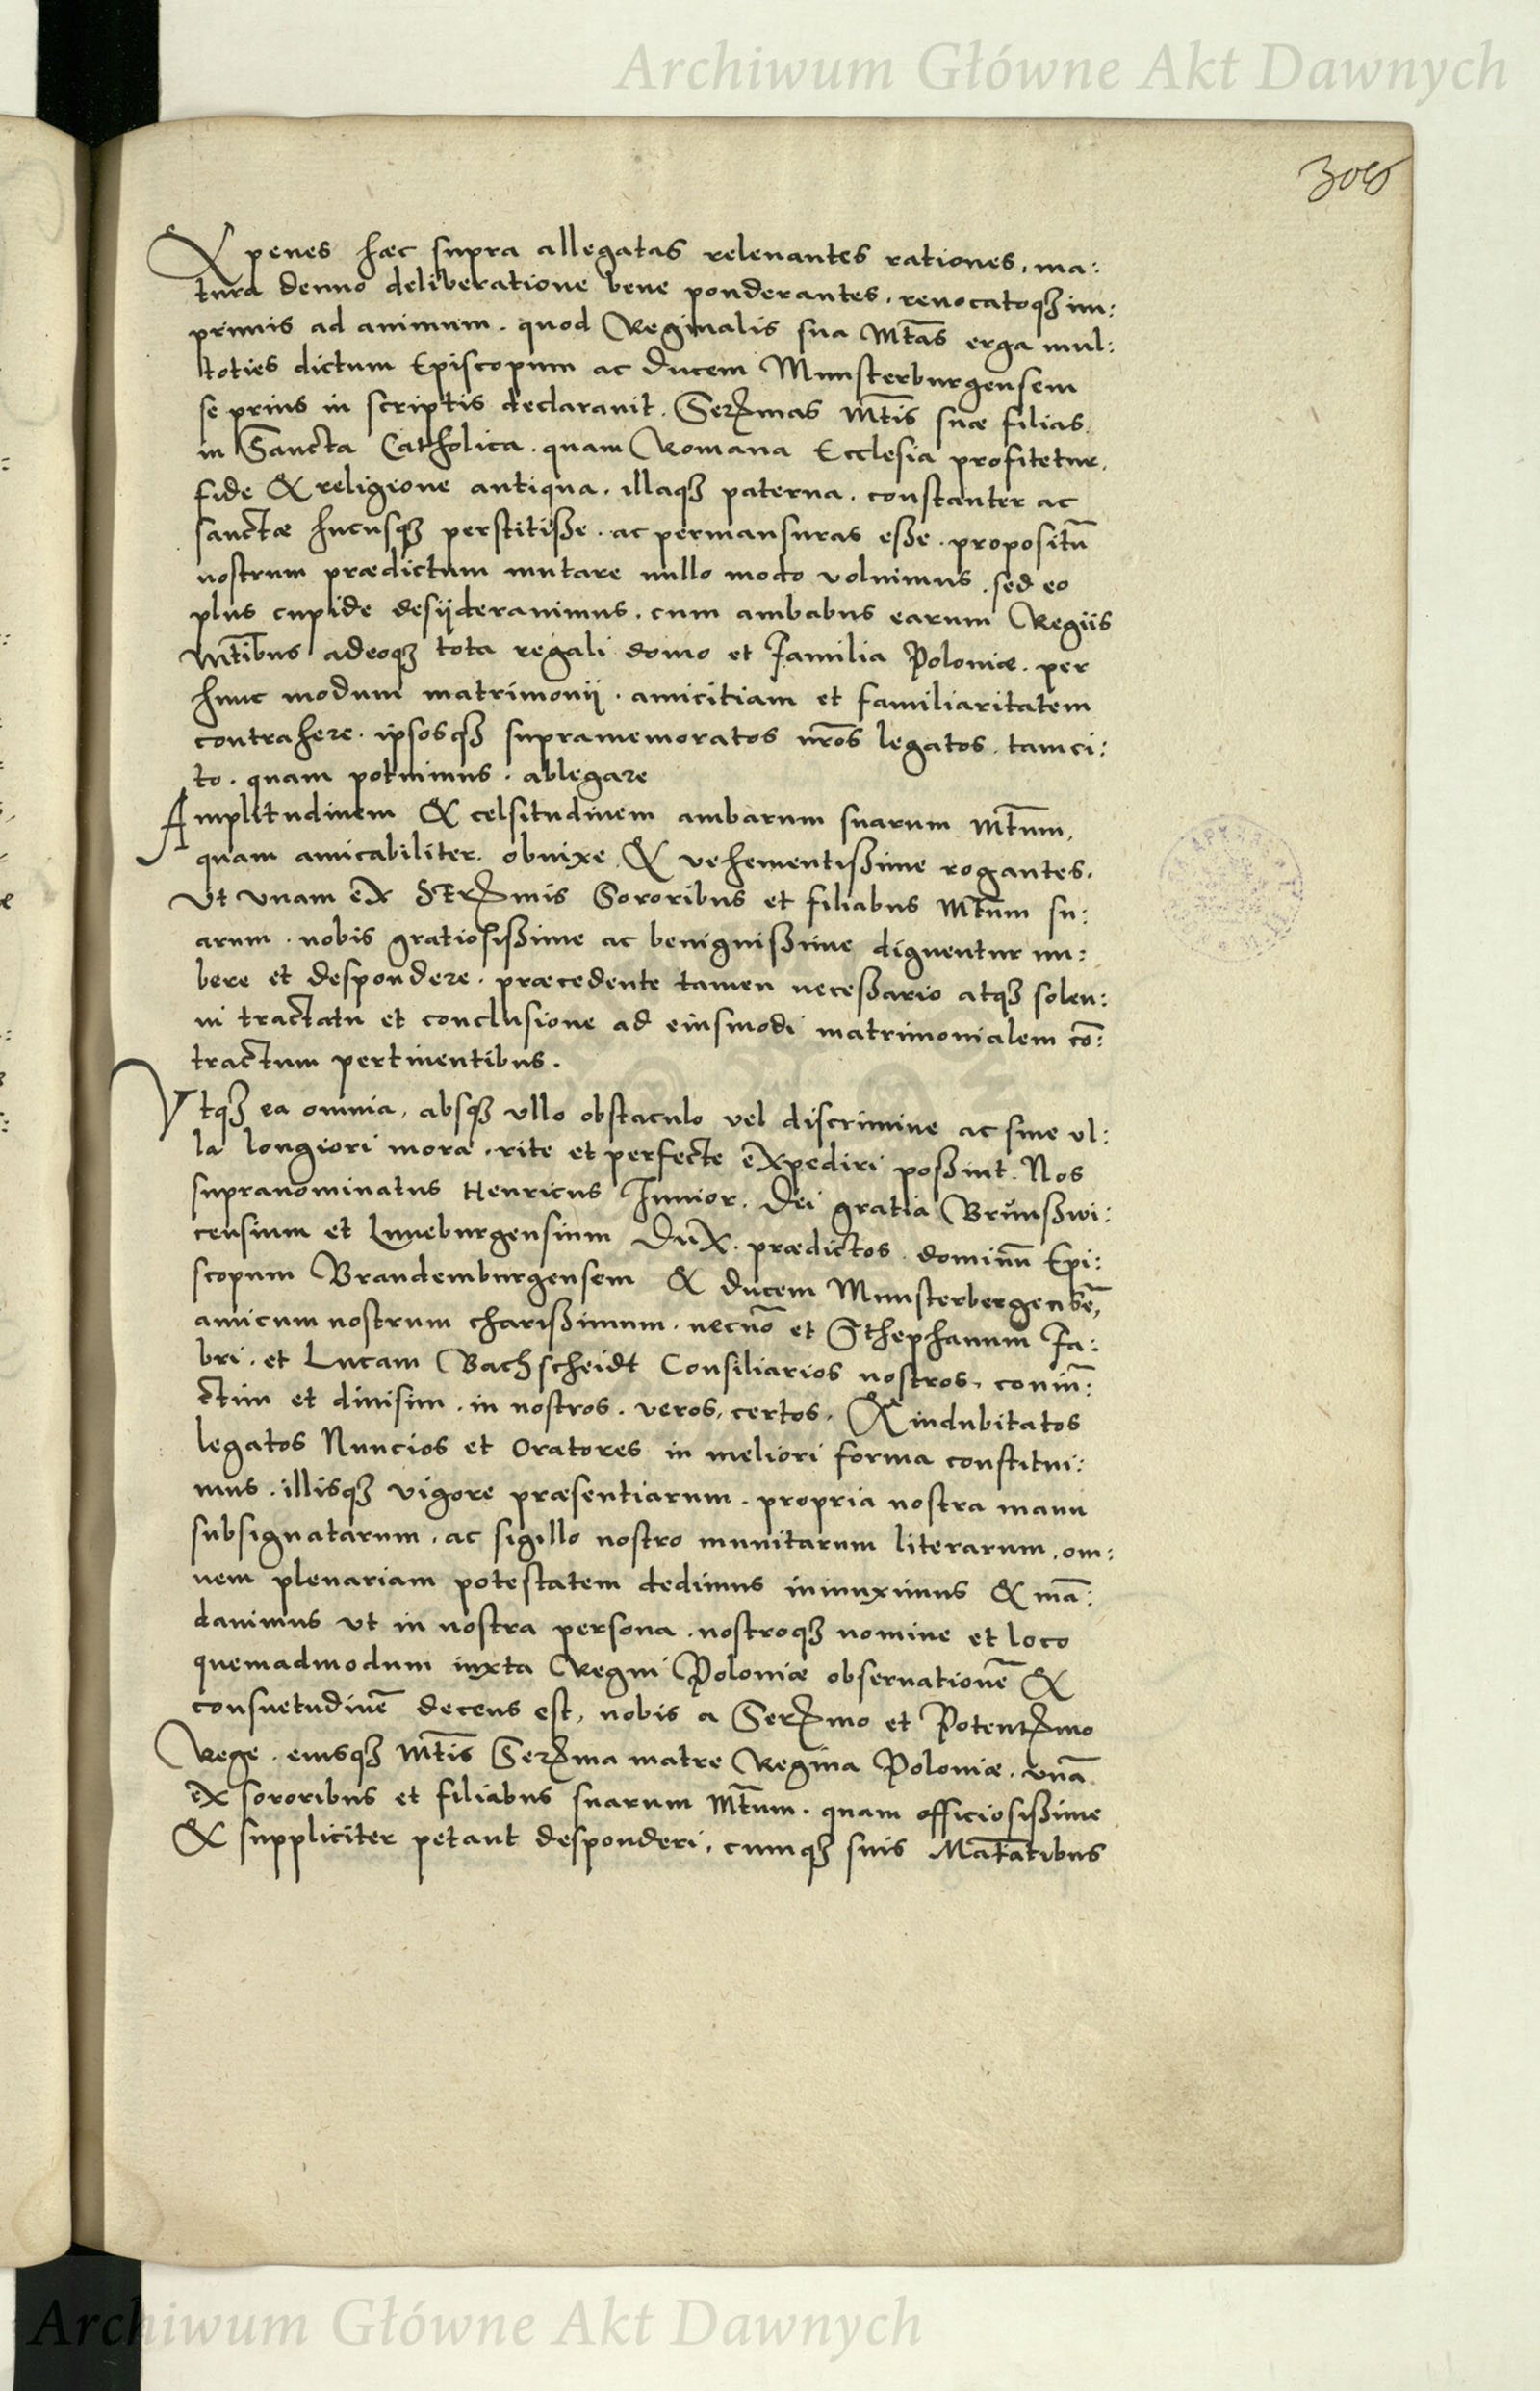 Archiwum Główne Akt Dawnych
& penes hæc supra allegatas relevantes rationes, ma:
tura denuo deliberatione bene ponderantes, revocatoq₃ im:
primis ad animum. quod Reginalis sua Mt̃as erga mul:
toties dictum Episcopum ac Ducem Munsterburgensem
se prius in scriptis declaravit. Serꝫmas Mt̃is suæ filias
in Sancta Catholica. quam Romana Ecclesia profitetur,
fide & religione antiqua. illaq₃ paterna. constanter ac
sanctæ hucusq₃ perstitiße. ac permansuras eße. propositũ
nostrum prædictum mutare nullo modo voluimus. sed eo
plus cupide desÿderavimus. cum ambabus earum Regiis
Mt̃ibus adeoq₃ tota regali domo et Familia Poloniæ. per
hunc modum matrimonÿ. amicitiam et familiaritatem
contrahere. ipsosq₃ supramemoratos nr̃os legatos. tam ci:
to. quam potuimus. ablegare
Amplitudinem & celsitudinem ambarum suarum Mt̃um,
quam amicabiliter. obnixe & vehementißime rogantes.
Ut unam ex Serꝫmis Sororibus et filiabus Mt̃um su:
arum. nobis gratiosißime ac benignißime dignentur nu:
bere et despondere. præcedente tamen neceßario atq₃ solen:
ni tractatu et conclusione ad eiusmodi matrimonialem cõ:
tractum pertinentibus.
Vtq₃ ea omnia, absq₃ ullo obstaculo vel discrimine ac sine ul:
la longiori mora. rite et perfecte expediri poßint. Nos
supranominatus Henricus Junior. Dei gratia Brunßwi:
censium et Luneburgensium Dux. prædictos. dominũ Epi:
scopum Brandemburgensem & ducem Munsterbergensẽ,
amicum nostrum charißimum. necnõ et Sthephanum Fa:
bri. et Lucam Bachscheidt Consiliarios nostros, coniũ:
ctim et divisim. in nostros. veros, certos, & indubitatos
legatos Nuncios et Oratores in meliori forma constitui:
mus. illisq₃ vigore præsentiarum. propria nostra manu
subsignatarum. ac sigillo nostro munitarum literarum. om:
nem plenariam potestatem dedimus iniunximus & mã:
davimus ut in nostra persona. nostroq₃ nomine et loco
quemadmodum iuxta Regni Poloniæ observationẽ &
consuetudinẽ decens est, nobis a Serꝫmo et Potentꝫmo
Rege. eiusq₃ Mt̃is Serꝫma matre Regina Poloniæ. unã
ex sororibus et filiabus suarum Mt̃um. quam officiosißime
& suppliciter petant desponderi, cumq₃ suis Mat̃atibus
Archiwum Główne Akt Dawnych